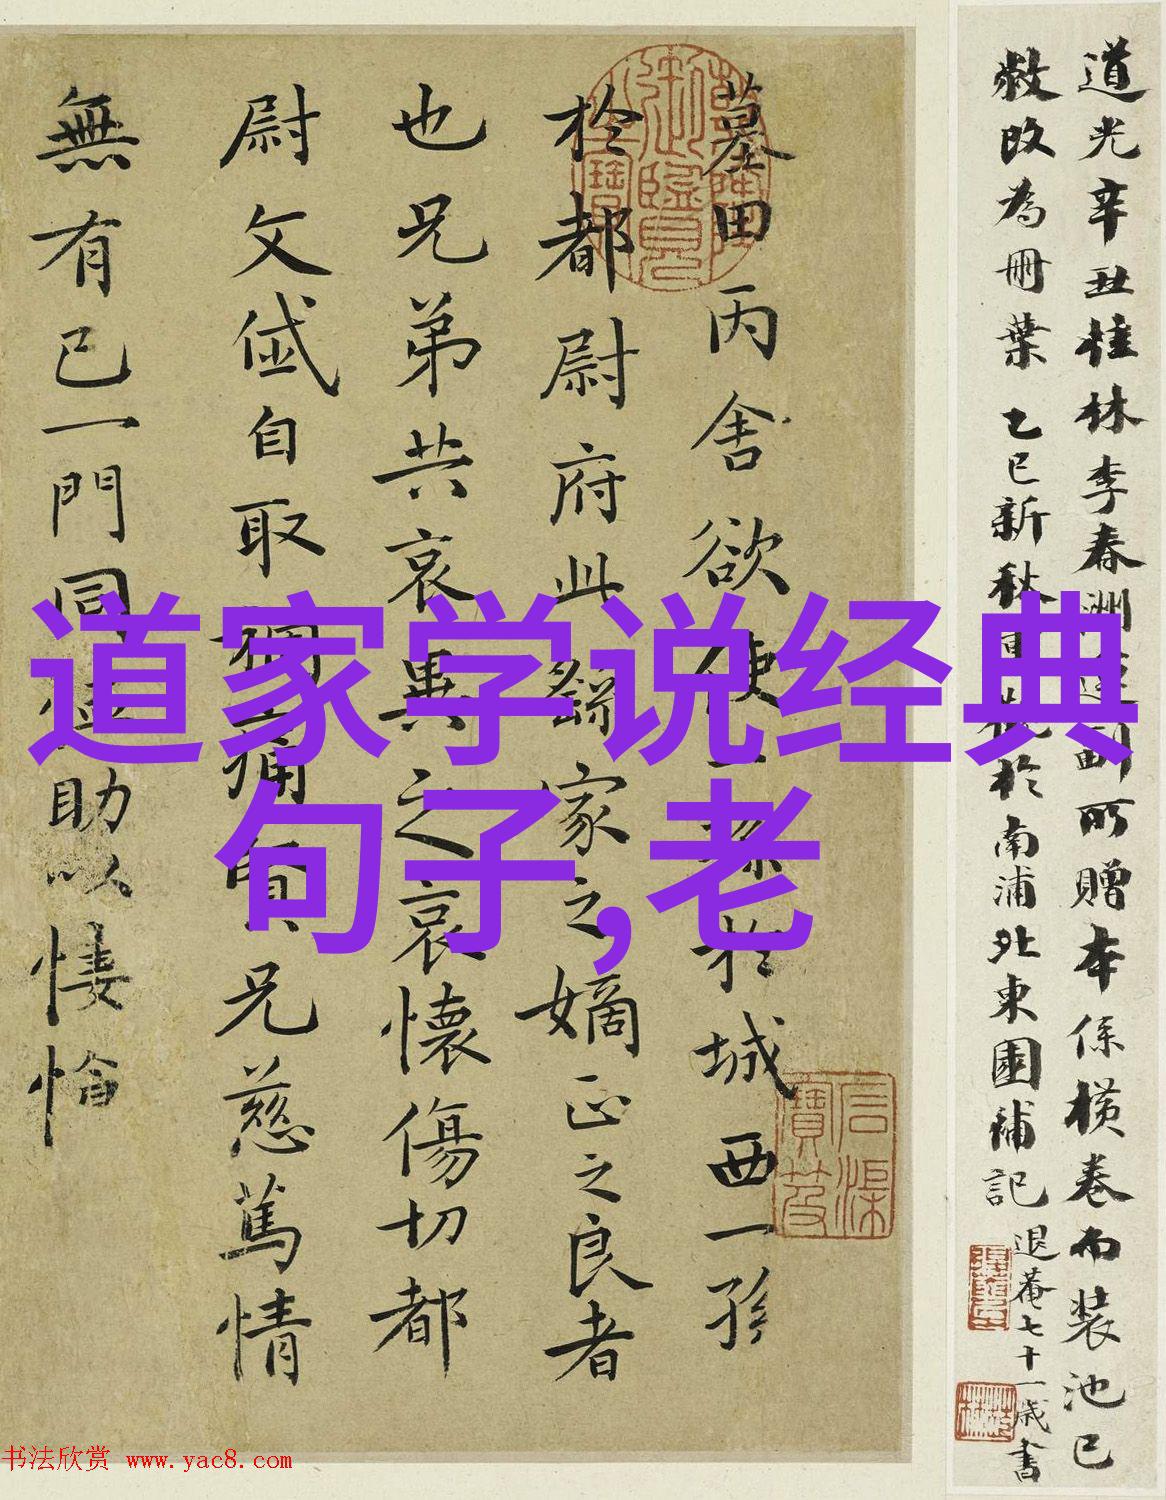 道光辛丑桂林李春洲所贈本係橫卷而裝池已
敝改為冊葉乙巳新秋於南浦北東園補記
退菴七十一歲書
墓田丙舍欲使一孫於城西一孫
於都尉府此繇家之嫡正之良者
也兄弟共哀異之哀懷傷切都
尉文岱自取禍痛賢兄慈篤情
無有已一門同恤助以悽愴
道家学说经典
句子,老
书法欣赏 www.yac8.com